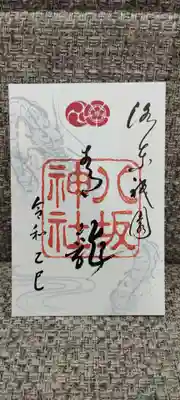 洛东祇園
青龍
八坂神社
令和乙巳